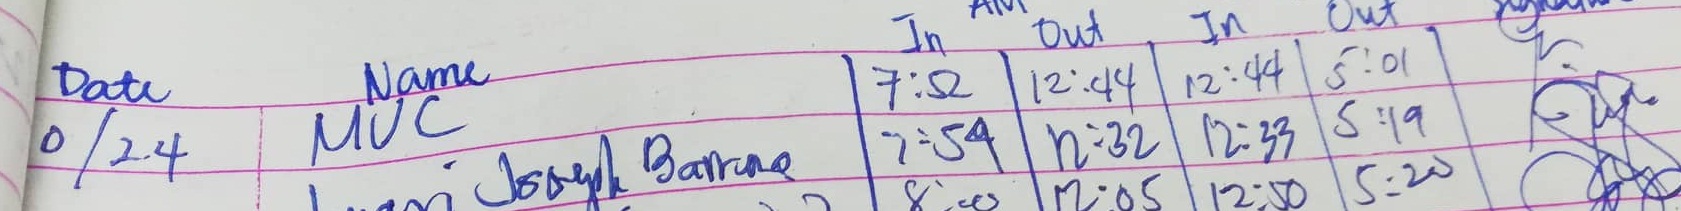 AM
In Out In Out
Date Name
0/24 MVC 7:52 12:44 12:44 5:01
Joseph 7:54 12:32 12:33 5:19
8:00 12:05 12:50 5:20